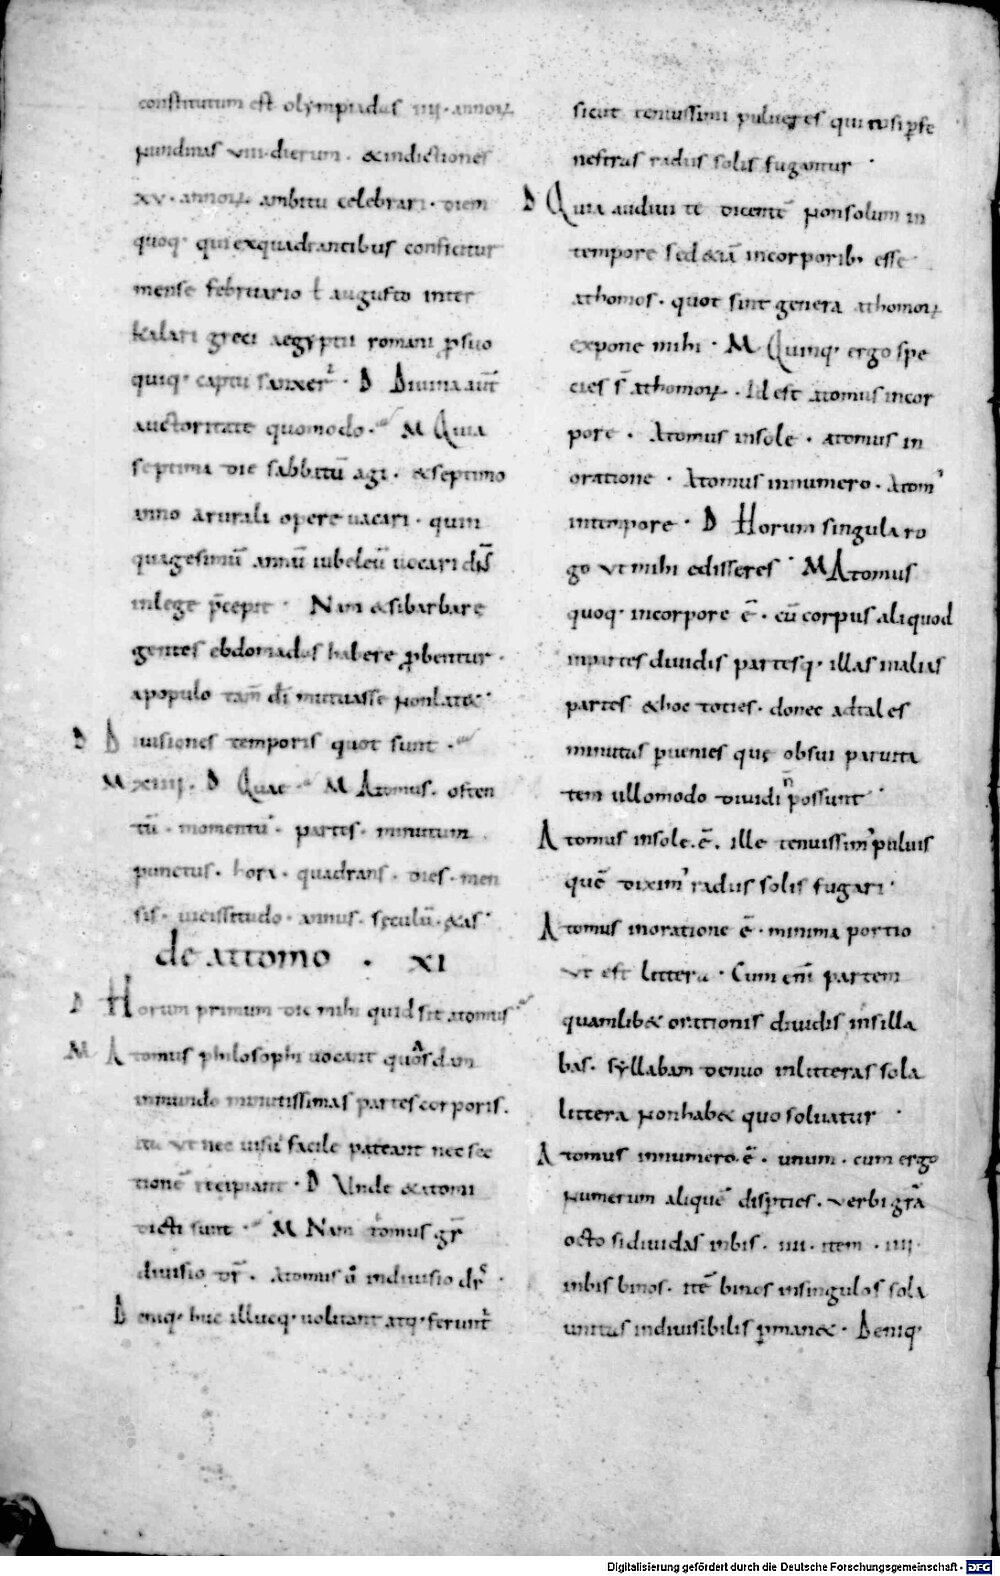 constitutum est olympiadas iiij · annoꝝ
nundinas viii · dierum · & indictiones
xv · annoꝝ ambitu celebrari · diem
quoq· qui exquadrantibus conficitur
mense februario ł augusto inter
kalari greci aegyptii romani ꝑsuo
quiq· captu sanxer̄ · D Diuina aut̄
auctoritate quomodo · M Quia
septima die sabbatū agi · & septimo
anno a rurali opere uacari · quin
quagesimū annū iubeleū uocari dn̄s
inlege p̄cepit · Nam & si barbarę
gentes ebdomadas habere ꝓbentur ·
apopulo tam̄ dī mutuasse nonlat& ·
D Diuisiones temporis quot sunt ·
M xiiij · D Quae · M Atomus · osten
tū · momentū · partes · minutum
punctus · hora · quadrans · dies · men
sis · uicissitudo · annus · sęculū · ętas ·
de attomo · XI
D Horum primum dic mihi quid sit atomus
M Atomus philosophi uocant quasdam
inmundo minutissimas partes corporis ·
ita ut nec uisui facile pateant nec sec
tionē recipiant · D Unde & atomi
dicti sunt · M Nam tomus gr̄
diuisio dr̄ · Atomus ū indiuisio dr̄ ·
Deniq· huc illucq· uolitant atq· ferunt̄
sicut tenuissimi pulueres qui fusi ꝑfe
nestras radiis solis fugantur ·
D Quia audiui te dicentē non solum in
tempore sed &iā incorporib· esse
athomos · quot sint genera athomoꝝ
expone mihi · M Quinq· ergo spe
cies s̄ athomoꝝ · Id est atomus incor
pore · Atomus insole · atomus in
oratione · Atomus innumero · Atom᾿
intempore · D Horum singula ro
go ut mihi edisseres · M Atomus
quoq· incorpore ē · cū corpus aliquod
inpartes diuidis partesq· illas inalias
partes & hoc toties · donec adtales
minutas ꝑuenies quę obsui paruita
tem ullomodo diuidi n̄ possunt ·
Atomus insole · ē · ille tenuissim᾿ puluis
quē dixim᾿ radiis solis fugari ·
Atomus inoratione ē · minima portio
ut est littera · Cum enī partem
quamlib& orationis diuidis insilla
bas · syllabam denuo inlitteras sola
littera non hab& quo soluatur ·
Atomus innumero · ē · unum · cum ergo
numerum aliquē disꝑties · verbi gr̄a
octo si diuidas inbis · iiii · item · iiii ·
inbis binos · itē binos insingulos sola
unitas indiuisibilis ꝑman& · Deniq·
Digitalisierung gefördert durch die Deutsche Forschungsgemeinschaft - DFG